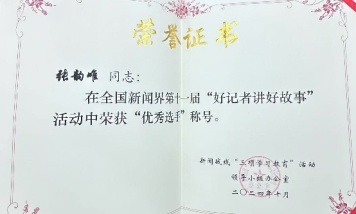 荣誉证书
张韵唯 同志：
在全国新闻界第十一届“好记者讲好故事”
活动中荣获“优秀选手”称号。
新闻战线“三项学习教育”活动
领导小组办公室
二〇二四年十月